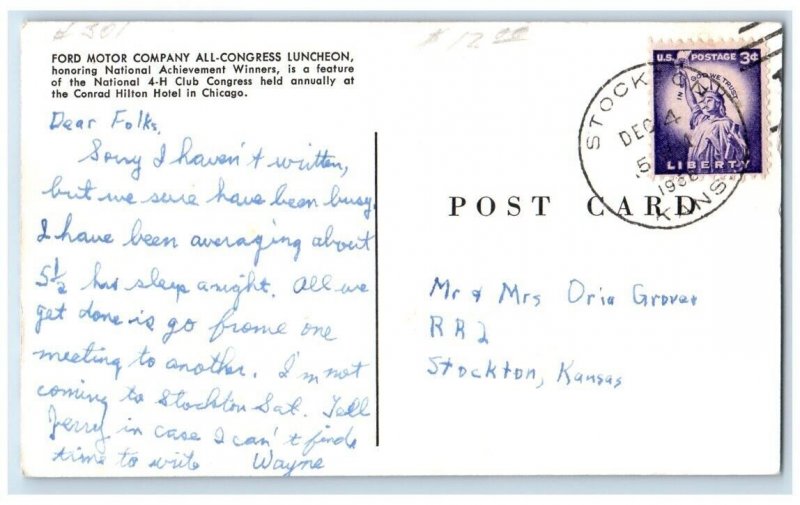 $12.00
FORD MOTOR COMPANY ALL-CONGRESS LUNCHEON,
honoring National Achievement Winners, is a feature
of the National 4-H Club Congress held annually at
the Conrad Hilton Hotel in Chicago.
Dear Folks,
Sorry I haven't written,
but we sure have been busy.
I have been averaging about
5½ hrs sleep a night. All we
get done is go frome one
meeting to another. I'm not
coming to Stockton Sat. Tell
Jerry in case I can't find
time to write Wayne
U.S. POSTAGE 3¢
IN GOD WE TRUST
LIBERTY
STOCKTON
DEC 4
5
195
KANS
POST CARD
Mr & Mrs Oria Grover
RR2
Stockton, Kansas